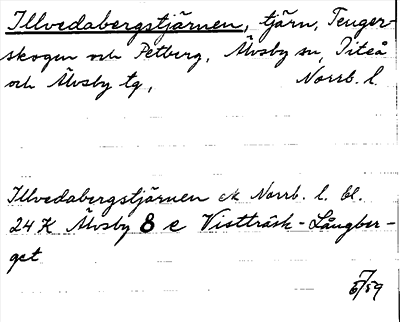 Illvedabergstjärnen, tjärn, Teuger-
skogen och Petberg, Älvsby sn, Piteå
och Älvsby tg, Norrb. l.
Illvedabergstjärnen ek Norrb. l. bl.
24K Älvsby 8 e Vistträsk - Långber-
get
5/7 59